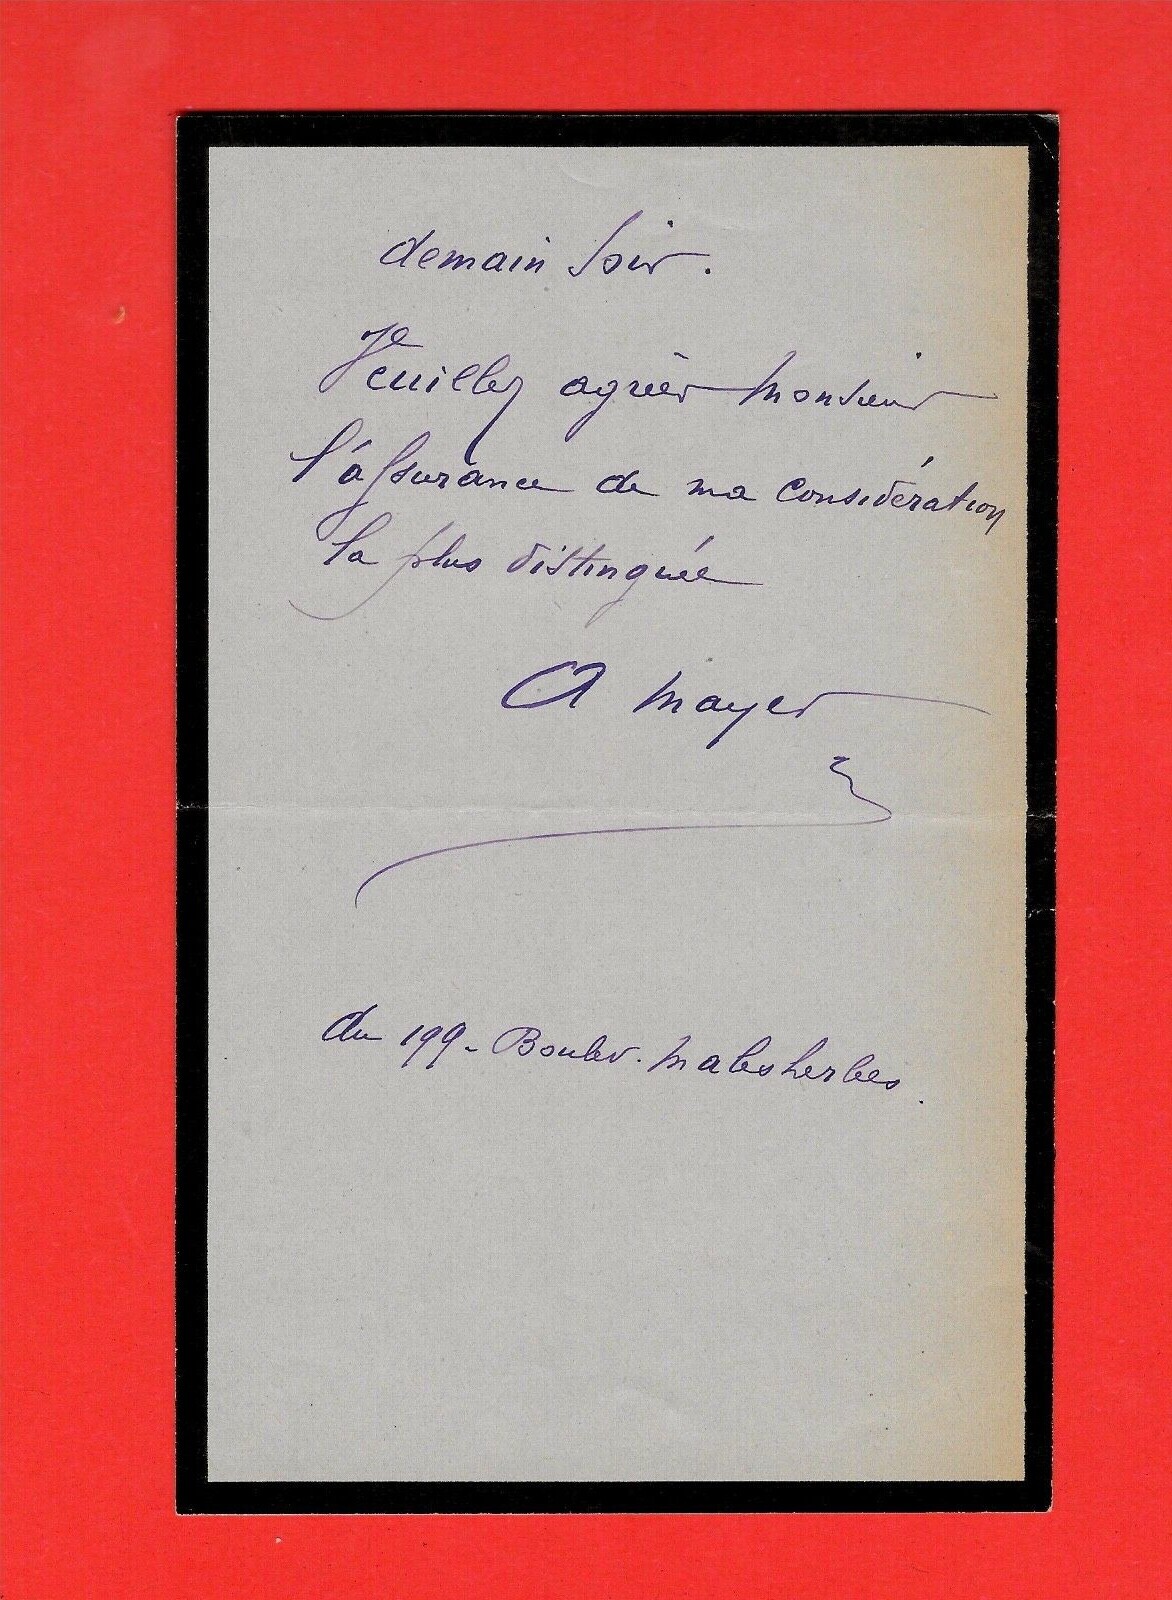 demain soir.
Veuillez agréer Monsieur
l'assurance de ma considération
la plus distinguée
A Mayer
du 199. Boulev. Malesherbes.